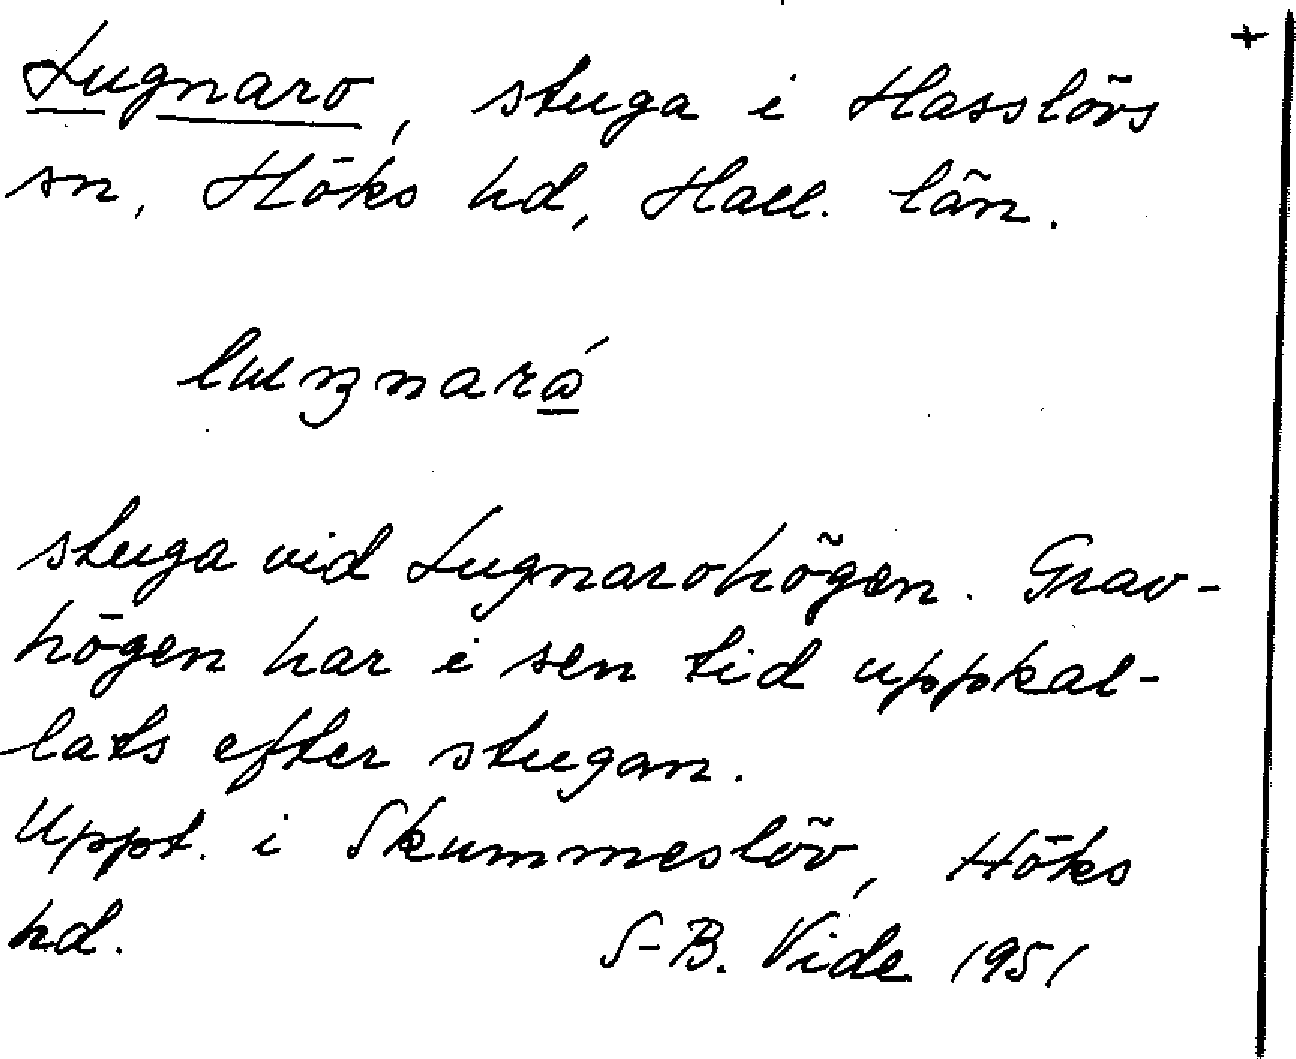 +
Lugnaro, stuga i Hasslövs
sn, Höks hd, Hall. län.
stuga vid Lugnarohögen. Grav-
högen har i sen tid uppkal-
lats efter stugan.
Uppt. i Skummeslöv, Höks
hd. S-B. Vide 1951